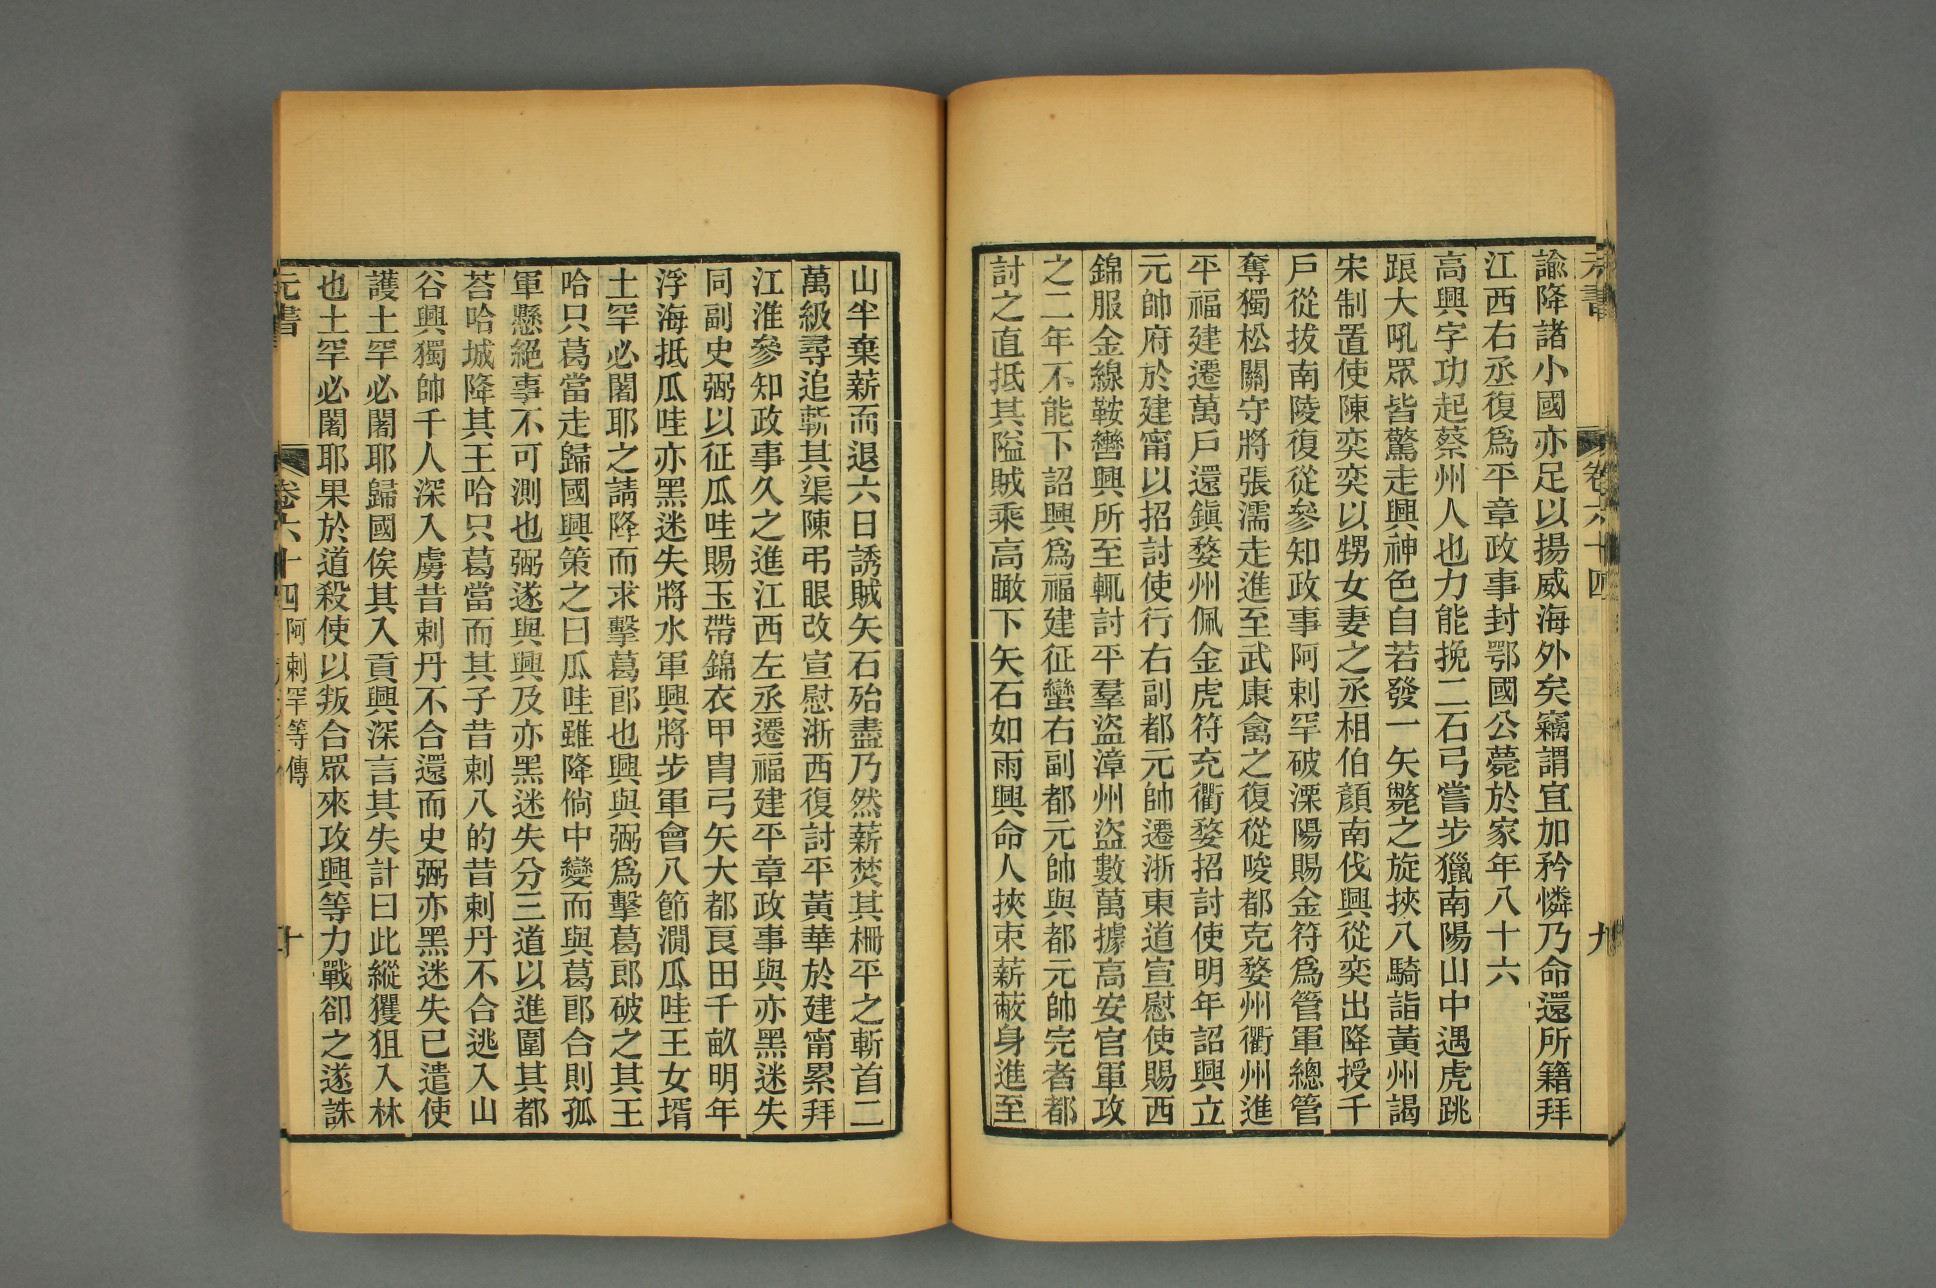 元書
卷六十四
九
諭降諸小國亦足以揚威海外矣竊謂宜加矜憐乃命還所籍拜
江西右丞復爲平章政事封鄂國公薨於家年八十六
高興字功起蔡州人也力能挽二石弓嘗步獵南陽山中遇虎跳
踉大吼眾皆驚走興神色自若發一矢斃之旋挾八騎詣黃州謁
宋制置使陳奕奕以甥女妻之丞相伯顏南伐興從奕出降授千
戶從拔南陵復從參知政事阿剌罕破溧陽賜金符爲管軍總管
奪獨松關守將張濡走進至武康禽之復從唆都克婺州衢州進
平福建遷萬戶還鎭婺州佩金虎符充衢婺招討使明年詔興立
元帥府於建甯以招討使行右副都元帥遷浙東道宣慰使賜西
錦服金線鞍轡興所至輒討平羣盜漳州盜數萬據高安官軍攻
之二年不能下詔興爲福建征蠻右副都元帥與都元帥完者都
討之直抵其隘賊乘高瞰下矢石如雨興命人挾束薪蔽身進至
山半棄薪而退六日誘賊矢石殆盡乃然薪焚其柵平之斬首二
萬級尋追斬其渠陳弔眼改宣慰浙西復討平黃華於建甯累拜
江淮參知政事久之進江西左丞遷福建平章政事與亦黑迷失
同副史弼以征瓜哇賜玉帶錦衣甲冑弓矢大都良田千畝明年
浮海抵瓜哇亦黑迷失將水軍興將步軍會八節澗瓜哇王女壻
土罕必闍耶之請降而求擊葛郎也興與弼爲擊葛郎破之其王
哈只葛當走歸國興策之曰瓜哇雖降倘中變而與葛郎合則孤
軍懸絕事不可測也弼遂與興及亦黑迷失分三道以進圍其都
荅哈城降其王哈只葛當而其子昔剌八的昔剌丹不合逃入山
谷興獨帥千人深入虜昔剌丹不合還而史弼亦黑迷失已遣使
護土罕必闍耶歸國俟其入貢興深言其失計曰此縱玃狙入林
也土罕必闍耶果於道殺使以叛合眾來攻興等力戰卻之遂誅
元書
卷六十四
阿剌罕等傳
十